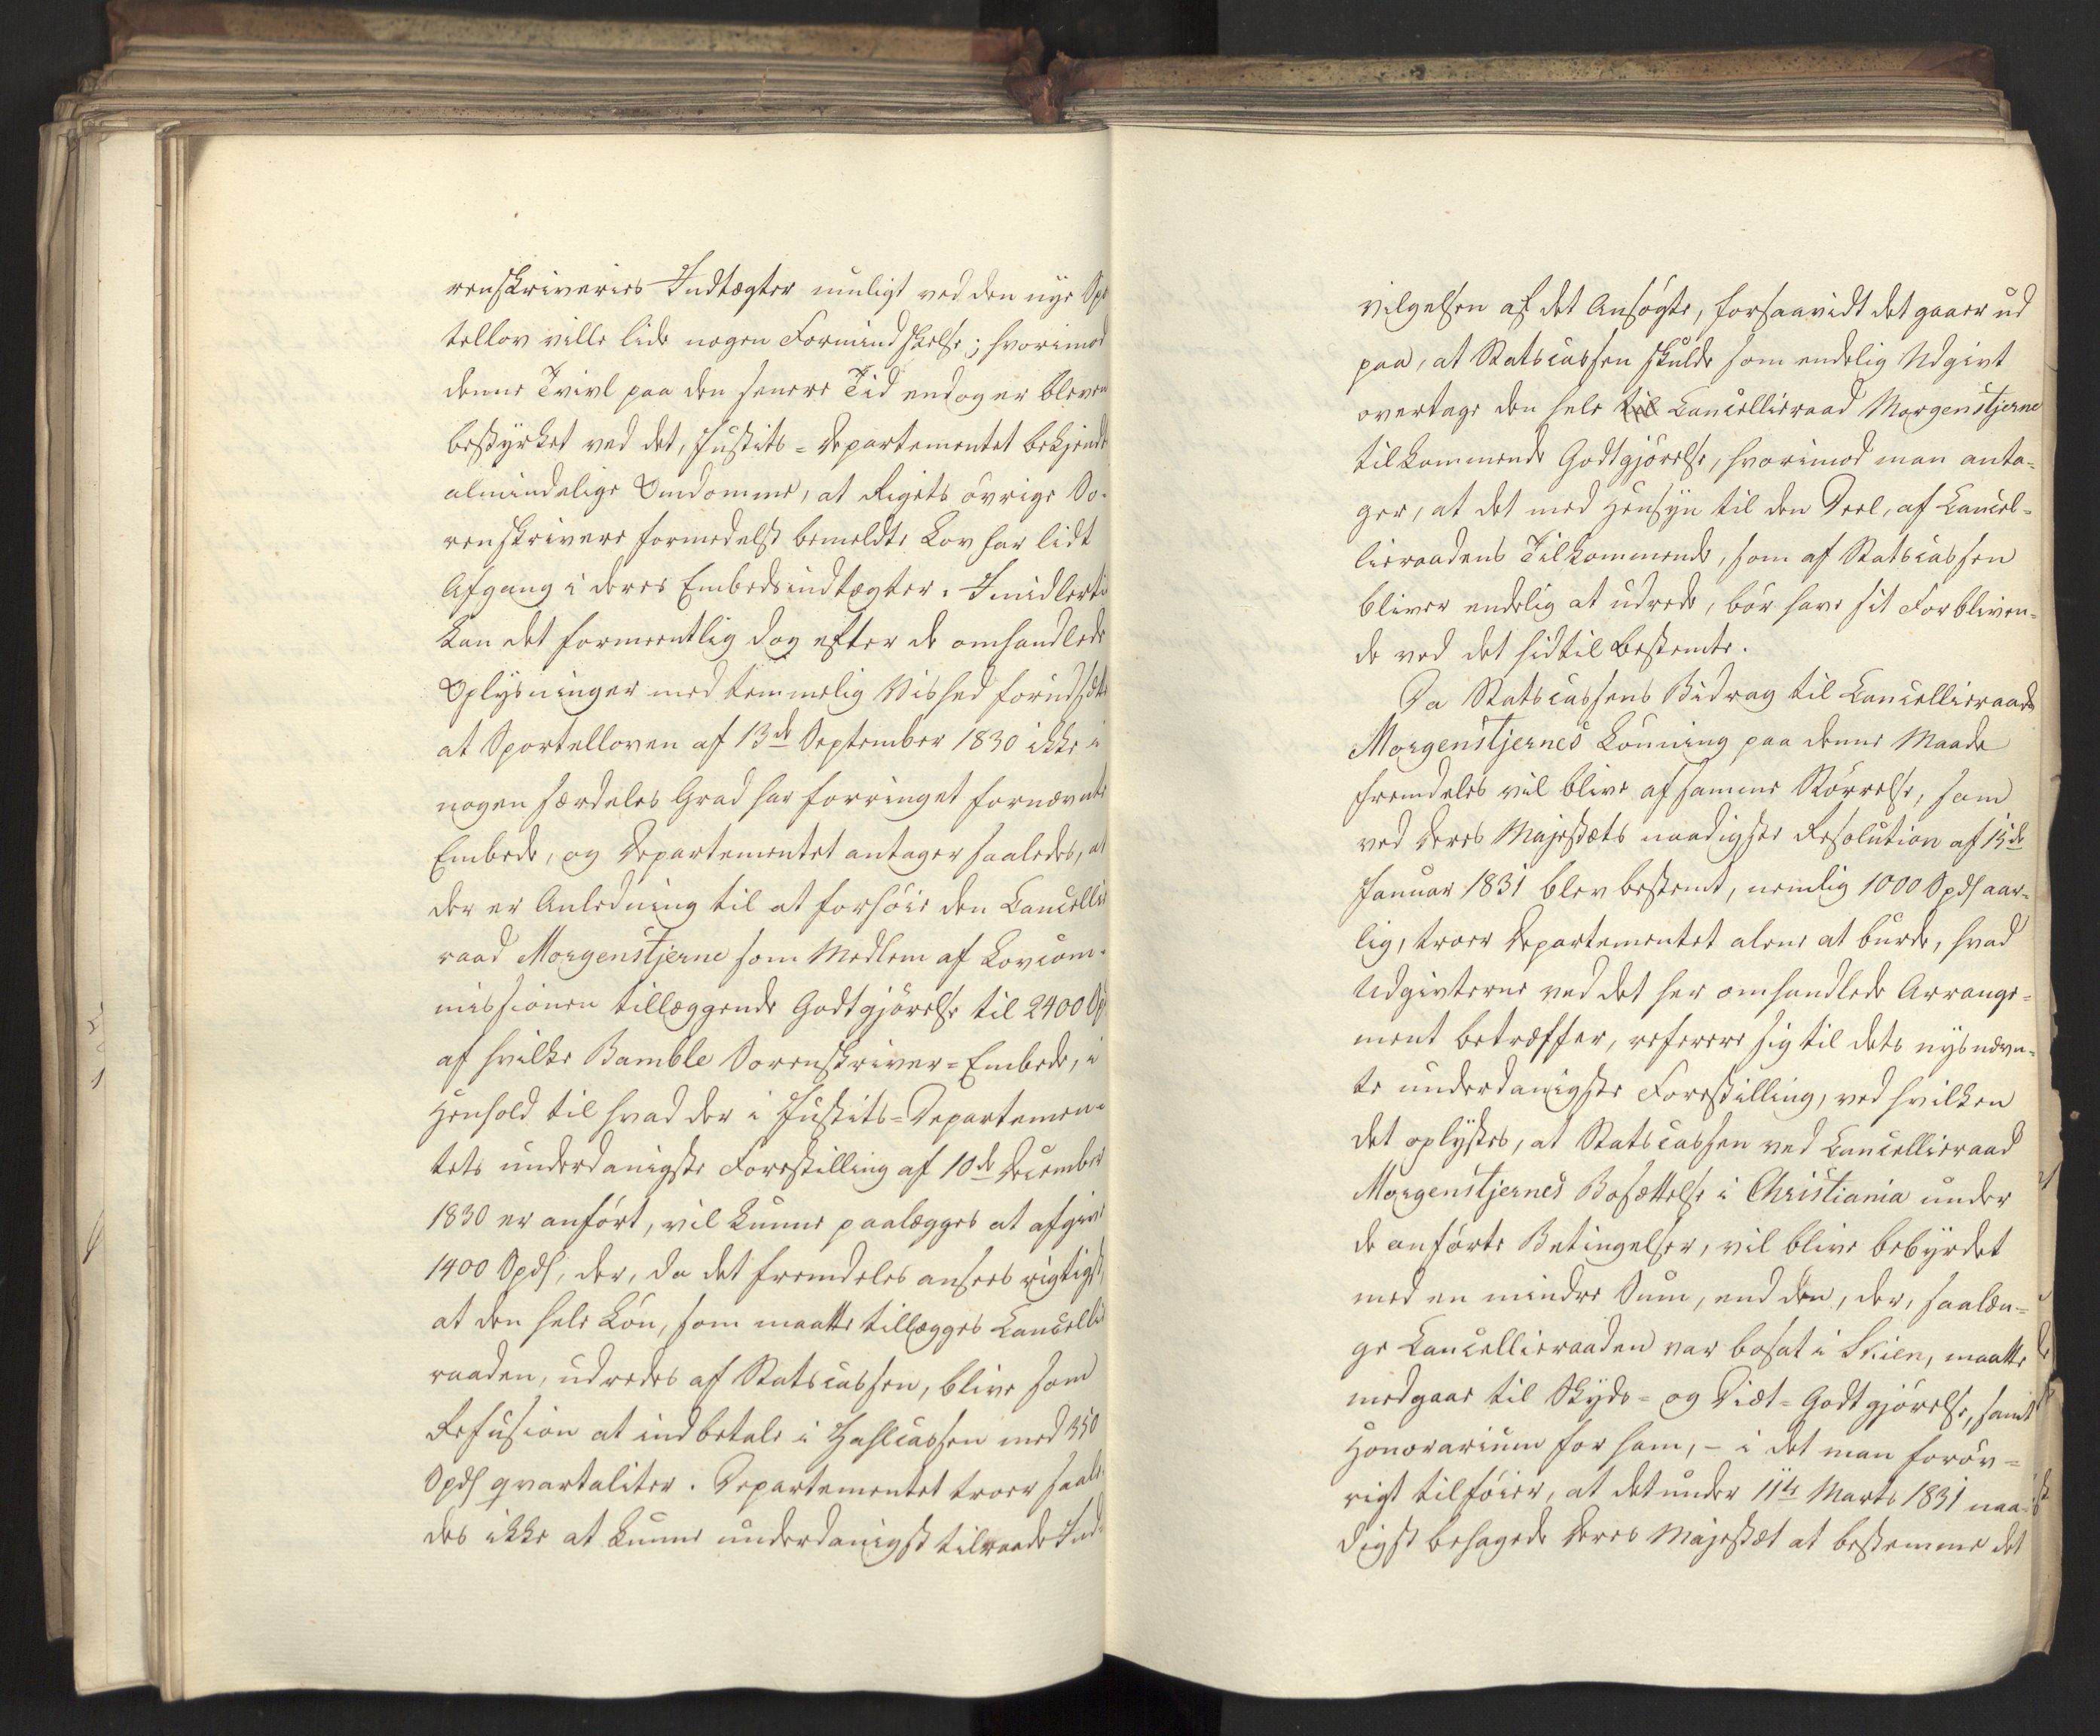 renskriveries Indtægter muligt ved den nye Spor
tellov ville lide nogen Formindskelse; hvorimod
denne Tvivl paa den senere Tid endog er bleven
bestyrket ved det, Justits=Departementet bekjendte
almindelige Omdømme, at Rigets øvrige So=
renskrivere formedelst bemeldte Lov har lidt
Afgang i deres Embedsindtægter. Imidlertid
kan det formeentlig dog efter de omhandlede
Oplysninger med temmelig Vished forudsætte
at Sportelloven af 13de September 1830 ikke i
nogen særdeles Grad har forringet fornævnte
Embede, og Departementet antager saaledes, at
der er Anledning til at forhøie den Cancellie
raad Morgenstjerne som Medlem af Lovcom=
missionen tillæggende Godtgjørelse til 2400 Spd
af hvilke Bamble Sorenskriver=Embede, i
Henhold til hvad der i Justits=Departemen=
tets underdanigste Forestilling af 10de December
1830 er anført, vil kunne paalægges at afgive
1400 Spd, der, da det fremdeles ansees rigtigst,
at den hele Løn, som maatte tillægges Cancellie
raaden, udredes af Statscassen, blive som
Refusion at indbetale i Zahlcassen med 350
Spd qvartaliter. Departementet troer saale=
des ikke at kunne underdanigst tilraade Ind=
vilgelsen af det Ansøgte, forsaavidt det gaaer ud
paa, at Statscassen skulde som endelig Udgivt
overtage den hele til Cancellieraad Morgenstjerne
tilkommende Godtgjørelse, hvorimod man anta=
ger, at det med Hensyn til den Deel, af Cancel=
lieraadens Tilkommende, som af Statscassen
bliver endelig at udrede, bør have sit Forbliven=
de ved det hidtil bestemte.
Da Statscassens Bidrag til Cancellieraad
Morgenstjernes Lønning paa denne Maade
fremdeles vil blive af samme Størrelse, som
ved Deres Majestæts naadigste Resolution af 15de
Januar 1831 blev bestemt, nemlig 1000 Spd aar=
lig, troer Departementet alene at burde, hvad
Udgivterne ved det her omhandlede Arrange=
ment betræffer, referere sig til dets nysnævn=
te underdanigste Forestilling, ved hvilken
det oplystes, at Statscassen ved Cancellieraad
Morgenstjernes Bosættelse i Christiania under
de anførte Betingelser, vil blive bebyrdet
med en mindre Sum, end den, der, saalæn=
ge Cancellieraaden var bosat i Skien, maatte
medgaae til Skyds= og Diæt=Godtgjørelse, samt
Honorarium for ham, – i det man forøv=
rigt tilføier, at det under 11te Marts 1831 naa=
digst behagede Deres Majestæt at bestemme det